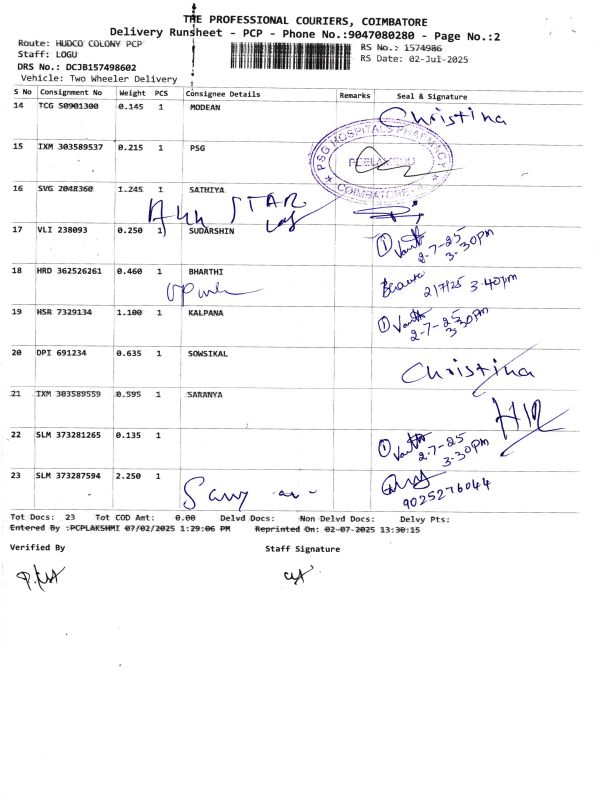 THE PROFESSIONAL COURIERS, COIMBATORE
Delivery Runsheet - PCP - Phone No.:9047080280 - Page No.:2
Route: HUDCO COLONY PCP
Staff: LOGU
DRS No.: DCJB157498602
Vehicle: Two Wheeler Delivery
RS No.: 1574986
RS Date: 02-Jul-2025
S No Consignment No Weight PCS Consignee Details Remarks Seal & Signature
14 TCG 50901300 0.145 1 MODEAN Christina
15 IXM 303589537 0.215 1 PSG
PSG HOSPITALS PHARMACY
COIMBATORE
16 SVG 2048360 1.245 1 SATHIYA
STAR
17 VLI 238093 0.250 1 SUDARSHIN 1 2-7-25
3.30pm
18 HRD 362526261 0.460 1 BHARTHI 2/7/25 3.40pm
19 HSR 7329134 1.100 1 KALPANA 1 2-7-25
3.30pm
20 DPI 691234 0.635 1 SOWSIKAL Christina
21 IXM 303589559 0.595 1 SARANYA
22 SLM 373281265 0.135 1 1 2-7-25
3.30pm
23 SLM 373287594 2.250 1
9025276044
Tot Docs: 23 Tot COD Amt: 0.00 Delvd Docs: Non Delvd Docs: Delvy Pts:
Entered By :PCPLAKSHMI 07/02/2025 1:29:06 PM Reprinted On: 02-07-2025 13:30:15
Verified By Staff Signature